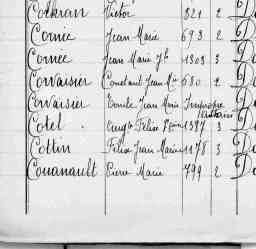 Colleran Victor 821 2 D
Cornée Jean Marie 693 2 D
Cornée Jean Marie Jh 1303 3 D
Corvaisier Constant Jean Mie 680 2 D
Corvaisier Emile Jean Marie Impropre D
Auxiliaire
Cotel Félix 1397 3 D
Cottin Félix Jean Marie 1178 3 D
Couanault Pierre Marie 799 2 D